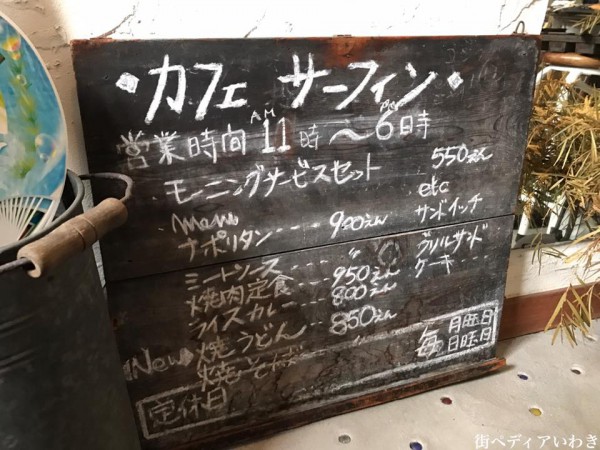 カフェ サーフィン
営業時間 AM 11時〜PM 6時
モーニングサービスセット 550えん
Menu etc
ナポリタン --- 900えん サンドイッチ
ミートソース --- 〃 グリルサンド
焼肉定食 --- 950えん ケーキ
ライスカレー --- 800えん
New 焼うどん --- 850えん
焼そば --- 〃
定休日 毎 月曜日 日曜日
街ペディアいわき